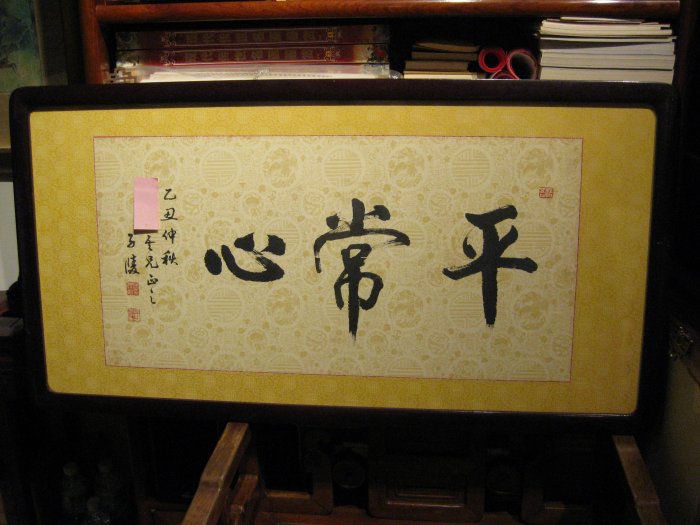 平常心
乙丑仲秋
兄正之
子陵